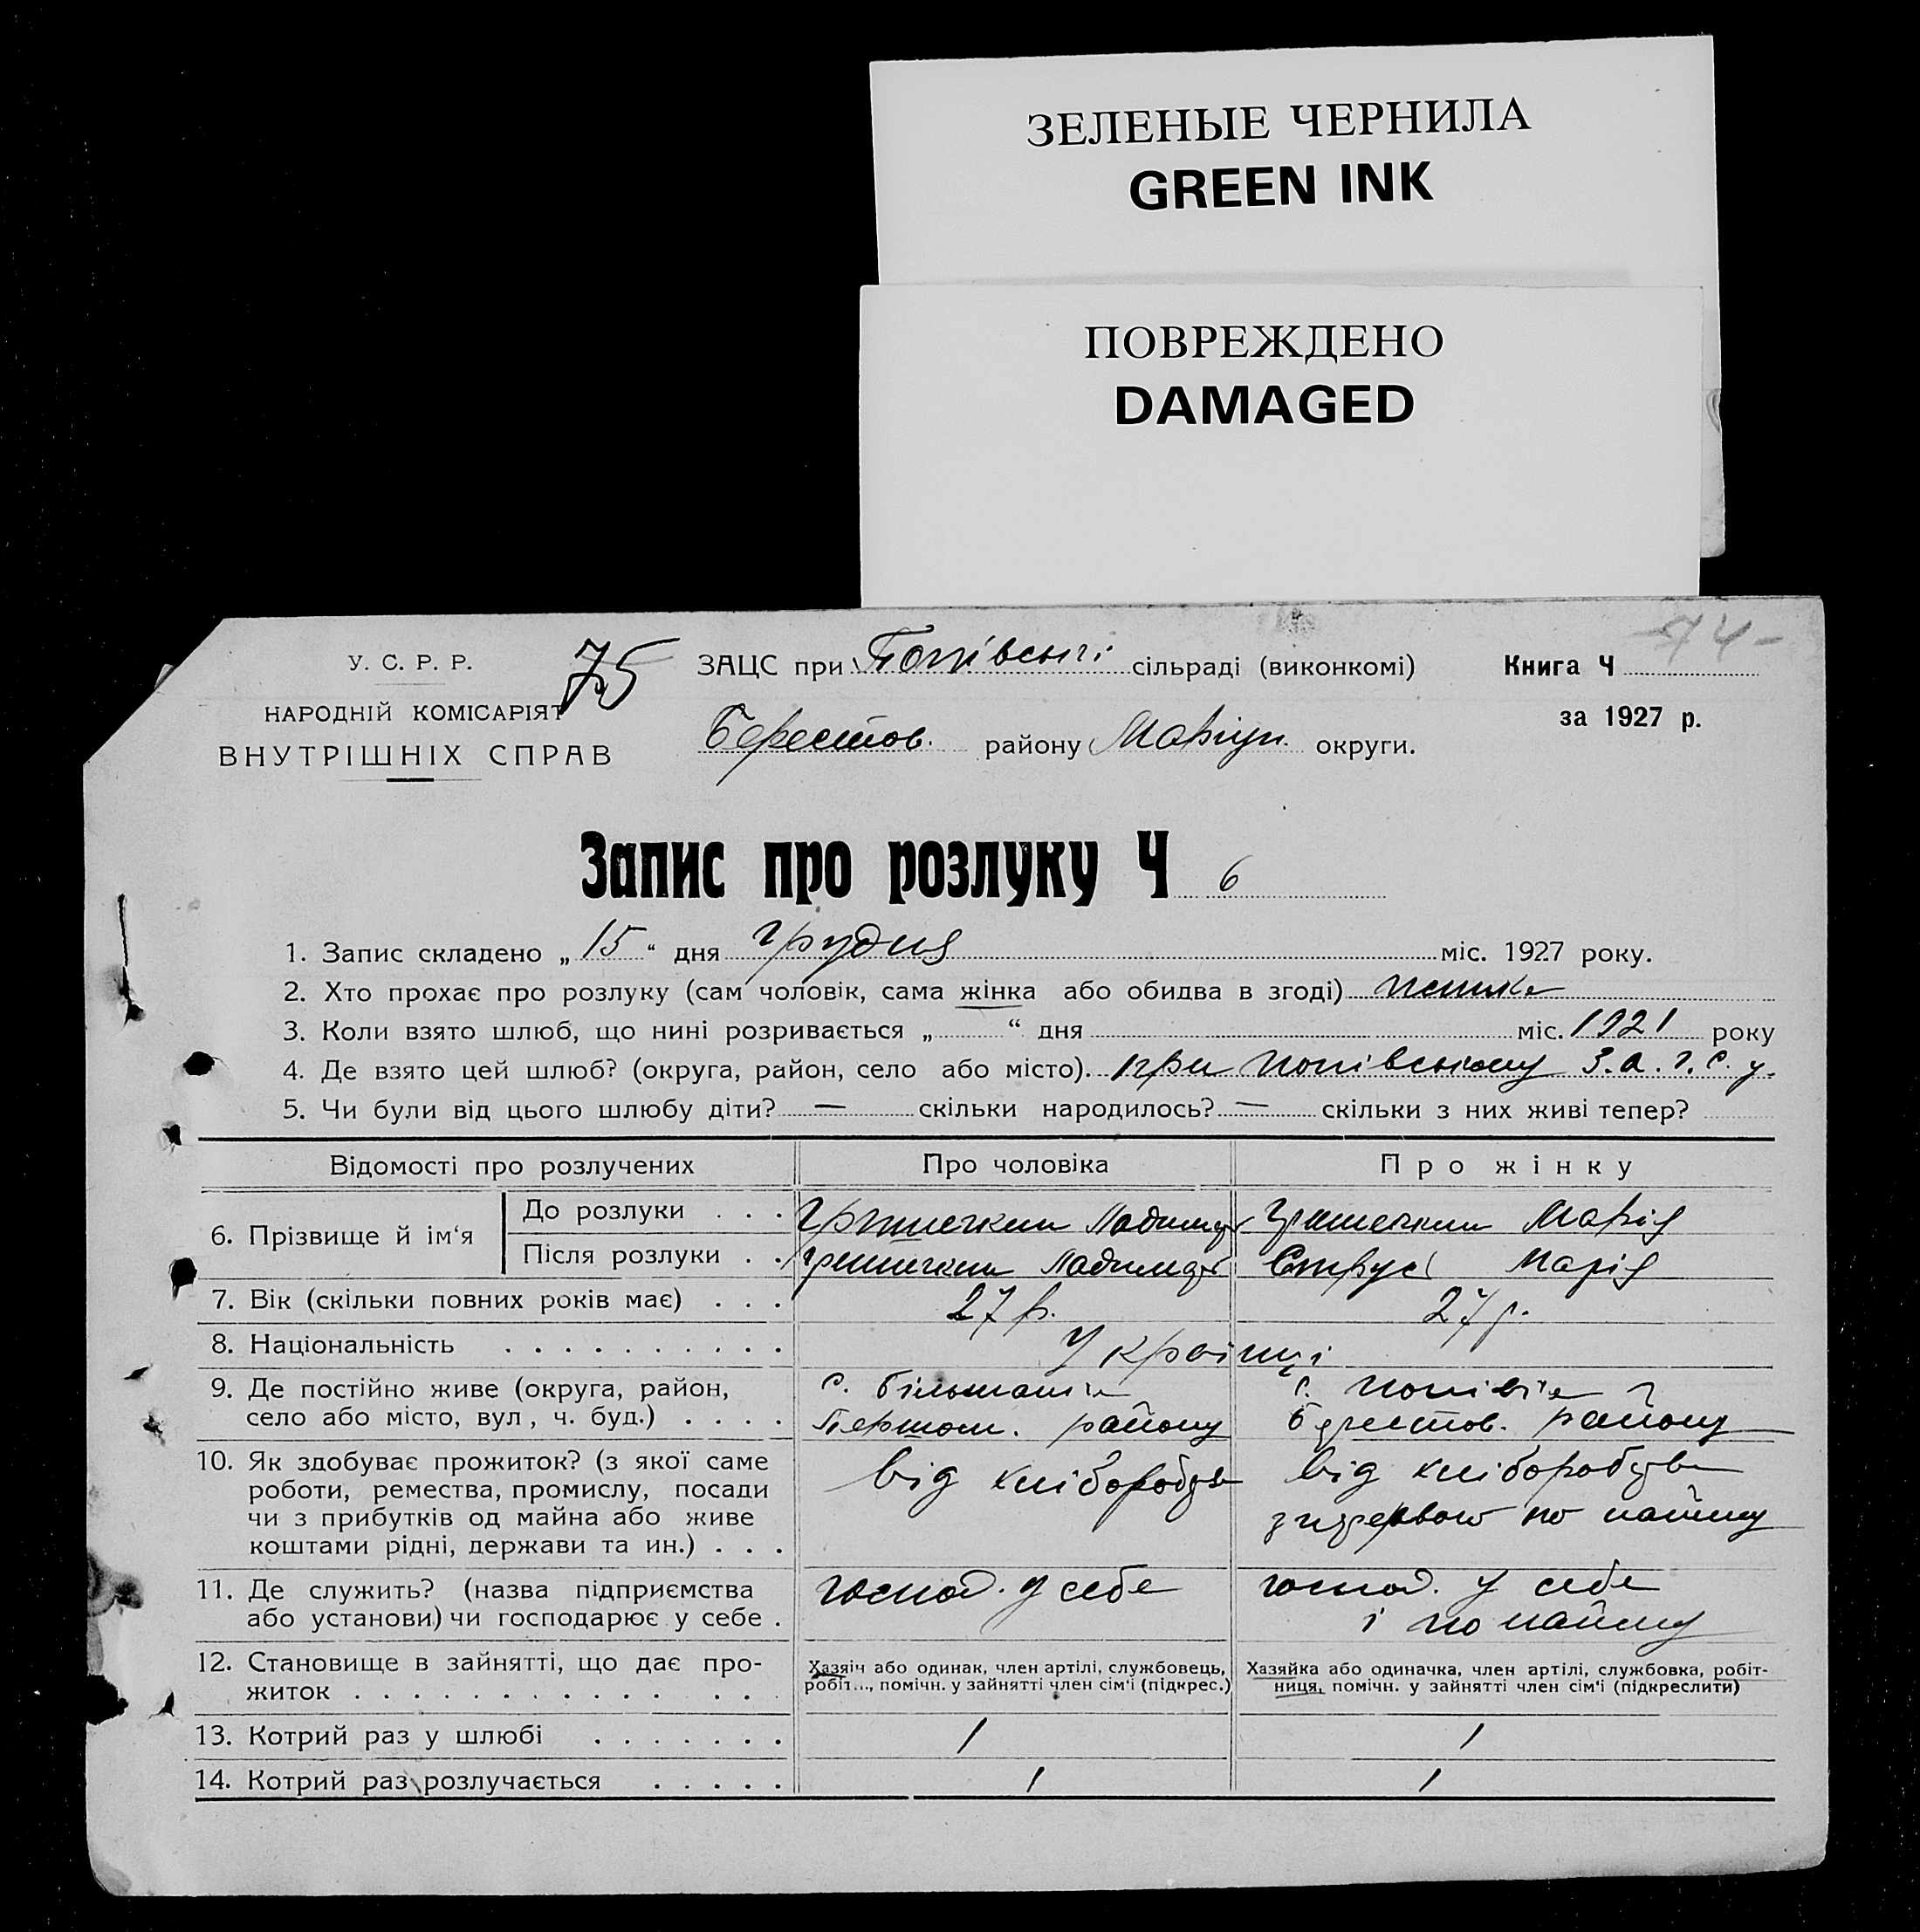 ЗЕЛЕНЫЕ ЧЕРНИЛА
GREEN INK
ПОВРЕЖДЕНО
DAMAGED
74-
У. С. Р. Р.
75
ЗАЦС при Попівські сільраді (виконкомі)
Книга Ч
НАРОДНІЙ КОМІСАРІЯТ
ВНУТРІШНІХ СПРАВ
Берестов. району Маріуп. округи.
за 1927 р.
Запис про розлуку Ч 6
1. Запис складено „ 15 “ дня грудня міс. 1927 року.
2. Хто прохає про розлуку (сам чоловік, сама жінка або обидва в згоді)
3. Коли взято шлюб, що нині розривається „ “ дня міс. 1921 року
4. Де взято цей шлюб? (округа, район, село або місто). при Попівському З.а.г.с.у.
5. Чи були від цього шлюбу діти? — скільки народилось? — скільки з них живі тепер?
Відомості про розлучених
Про чоловіка
Про жінку
6. Прізвище й ім‘я
До розлуки . . .
Марія
Після розлуки . .
Марія
7. Вік (скільки повних років має) . . .
27 р.
27 р.
8. Національність . . . . . . . . . .
Українці
9. Де постійно живе (округа, район,
село або місто, вул, ч. буд.) . . . .
с.
району
с. Попівка
Берестов. району
10. Як здобуває прожиток? (з якої саме
роботи, ремества, промислу, посади
чи з прибутків од майна або живе
коштами рідні, держави та ин.) . . .
від хліборобства
від хліборобства
по найму
11. Де служить? (назва підприємства
або установи) чи господарює у себе .
господ. у себе
господ. у себе
і по найму
12. Становище в зайнятті, що дає про-
житок . . . . . . . . . . . . . .
Хазяїн або одинак, член артілі, службовець,
робіт..., помічн. у зайнятті член сім‘ї (підкрес.)
Хазяйка або одиначка, член артілі, службовка, робіт-
ниця, помічн. у зайнятті член сім‘ї (підкреслити)
13. Котрий раз у шлюбі . . . . . . .
1
1
14. Котрий раз розлучається . . . . .
1
1